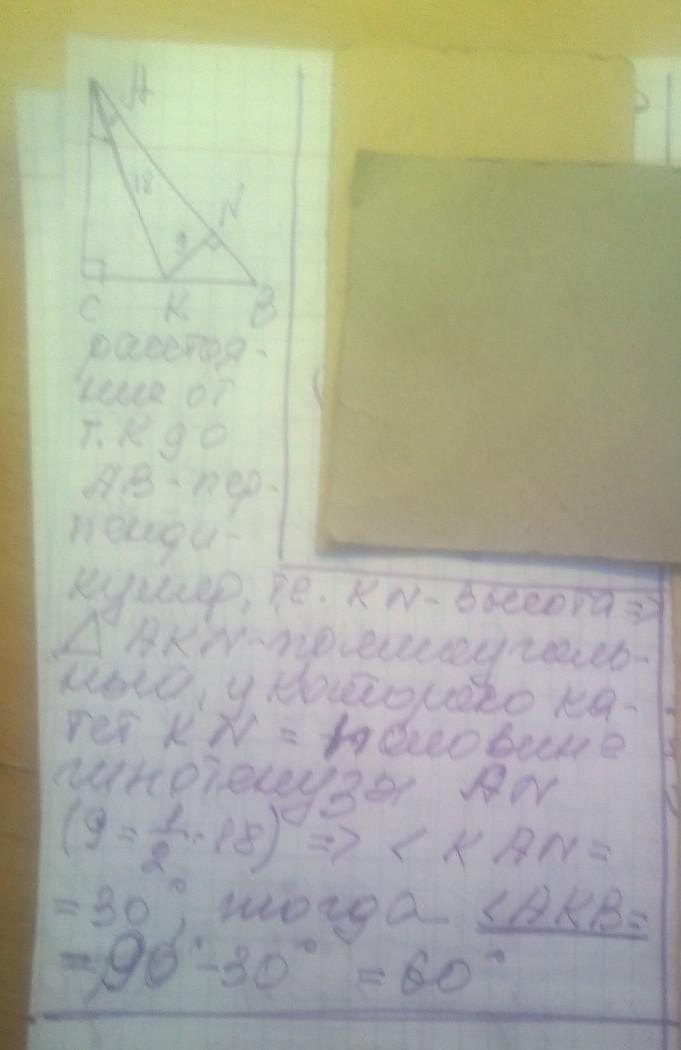 A
18
N
9
C K B
расстоя-
ние от
т. К до
АВ - пер-
пенди-
куляр, т.е. KN - высота =>
△ AKN - прямоуголь-
ный, у которого ка-
тет KN = половине
гипотенузы AN
(9 = 1/2 · 18) => < KAN =
= 30°, тогда <AKB =
= 90° - 30° = 60°